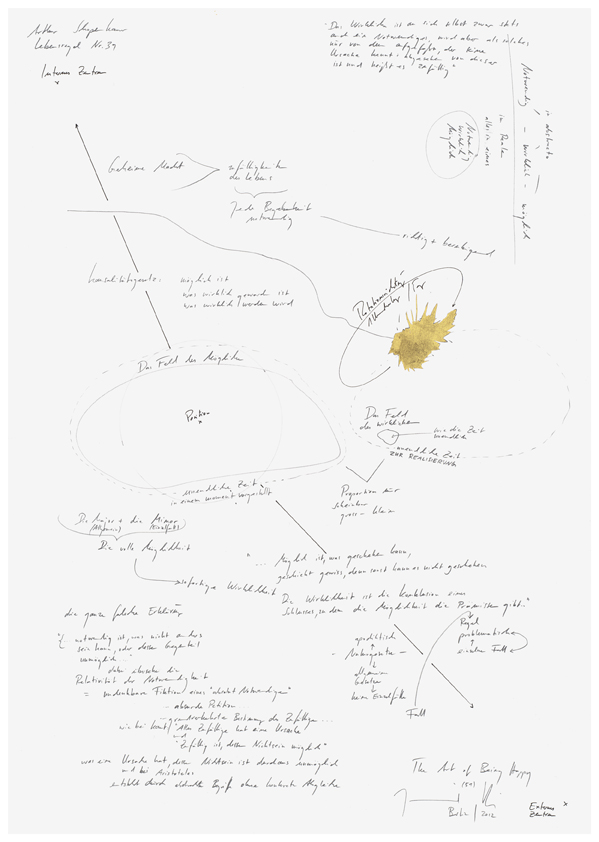 Arthur Schopenhauer
Lebensregel Nr. 39
Internes Zentrum
x
"Das Wirkliche ist an sich selbst zwar stets
auch ein Notwendiges, wird aber als solches
nur von dem aufgefaßt, der seine
Ursache kennt: abgesehen von dieser
ist und heißt es zufällig"
in abstracto
Notwendig – wirklich – möglich
in Realen
alles in einem
Notwendig
Wirklich
Möglich
Geheime Macht
Zufälligkeit
des Lebens
Jede Begebenheit
notwendig
richtig + beruhigend
Kausalitätsgesetz:
möglich ist
was wirklich geworden ist
was wirklich werden wird
Das Feld des Möglichen
Position
x
unendliche Zeit
in einem Moment vorgestellt
Das Feld
des Wirklichen
wie die Zeit
unendlich
unendliche Zeit
ZUR REALISIERUNG
Proportion nur
scheinbar
gross – klein
Die Major + die Minor
(Allgemein) (Einzelfall)
Die volle Möglichkeit
sofortige Wirklichkeit
"... Möglich ist, was geschehen kann,
geschieht gewiss, denn sonst kann es nicht geschehen
Die Wirklichkeit ist die Konklusion eines
Schlusses, zu dem die Möglichkeit die Prämissen gibt."
die ganze falsche Erklärung
notwendig ist, was nicht anders
sein kann, oder dessen Gegenteil
unmöglich...
dabei übersehen die
Relativität der Notwendigkeit
= undenkbare Fiktion eines "absolut Notwendigen"
– absurde Position
wie bei Kant/ "Alles Zufällige hat eine Ursache"
und
"Zufällig ist, dessen Nichtsein möglich"
was eine Ursache hat, dessen Nichtsein ist durchaus unmöglich
und bei Aristoteles
entsteht durch abstrakte Begriffe ohne konkrete
apodiktisch
– Naturgesetze –
allgemein
kein Einzelfall
Regel
problematisch
einzelner Fall
Fall
The Art of Being Happy
Berlin / 2012
Externes x
Zentrum